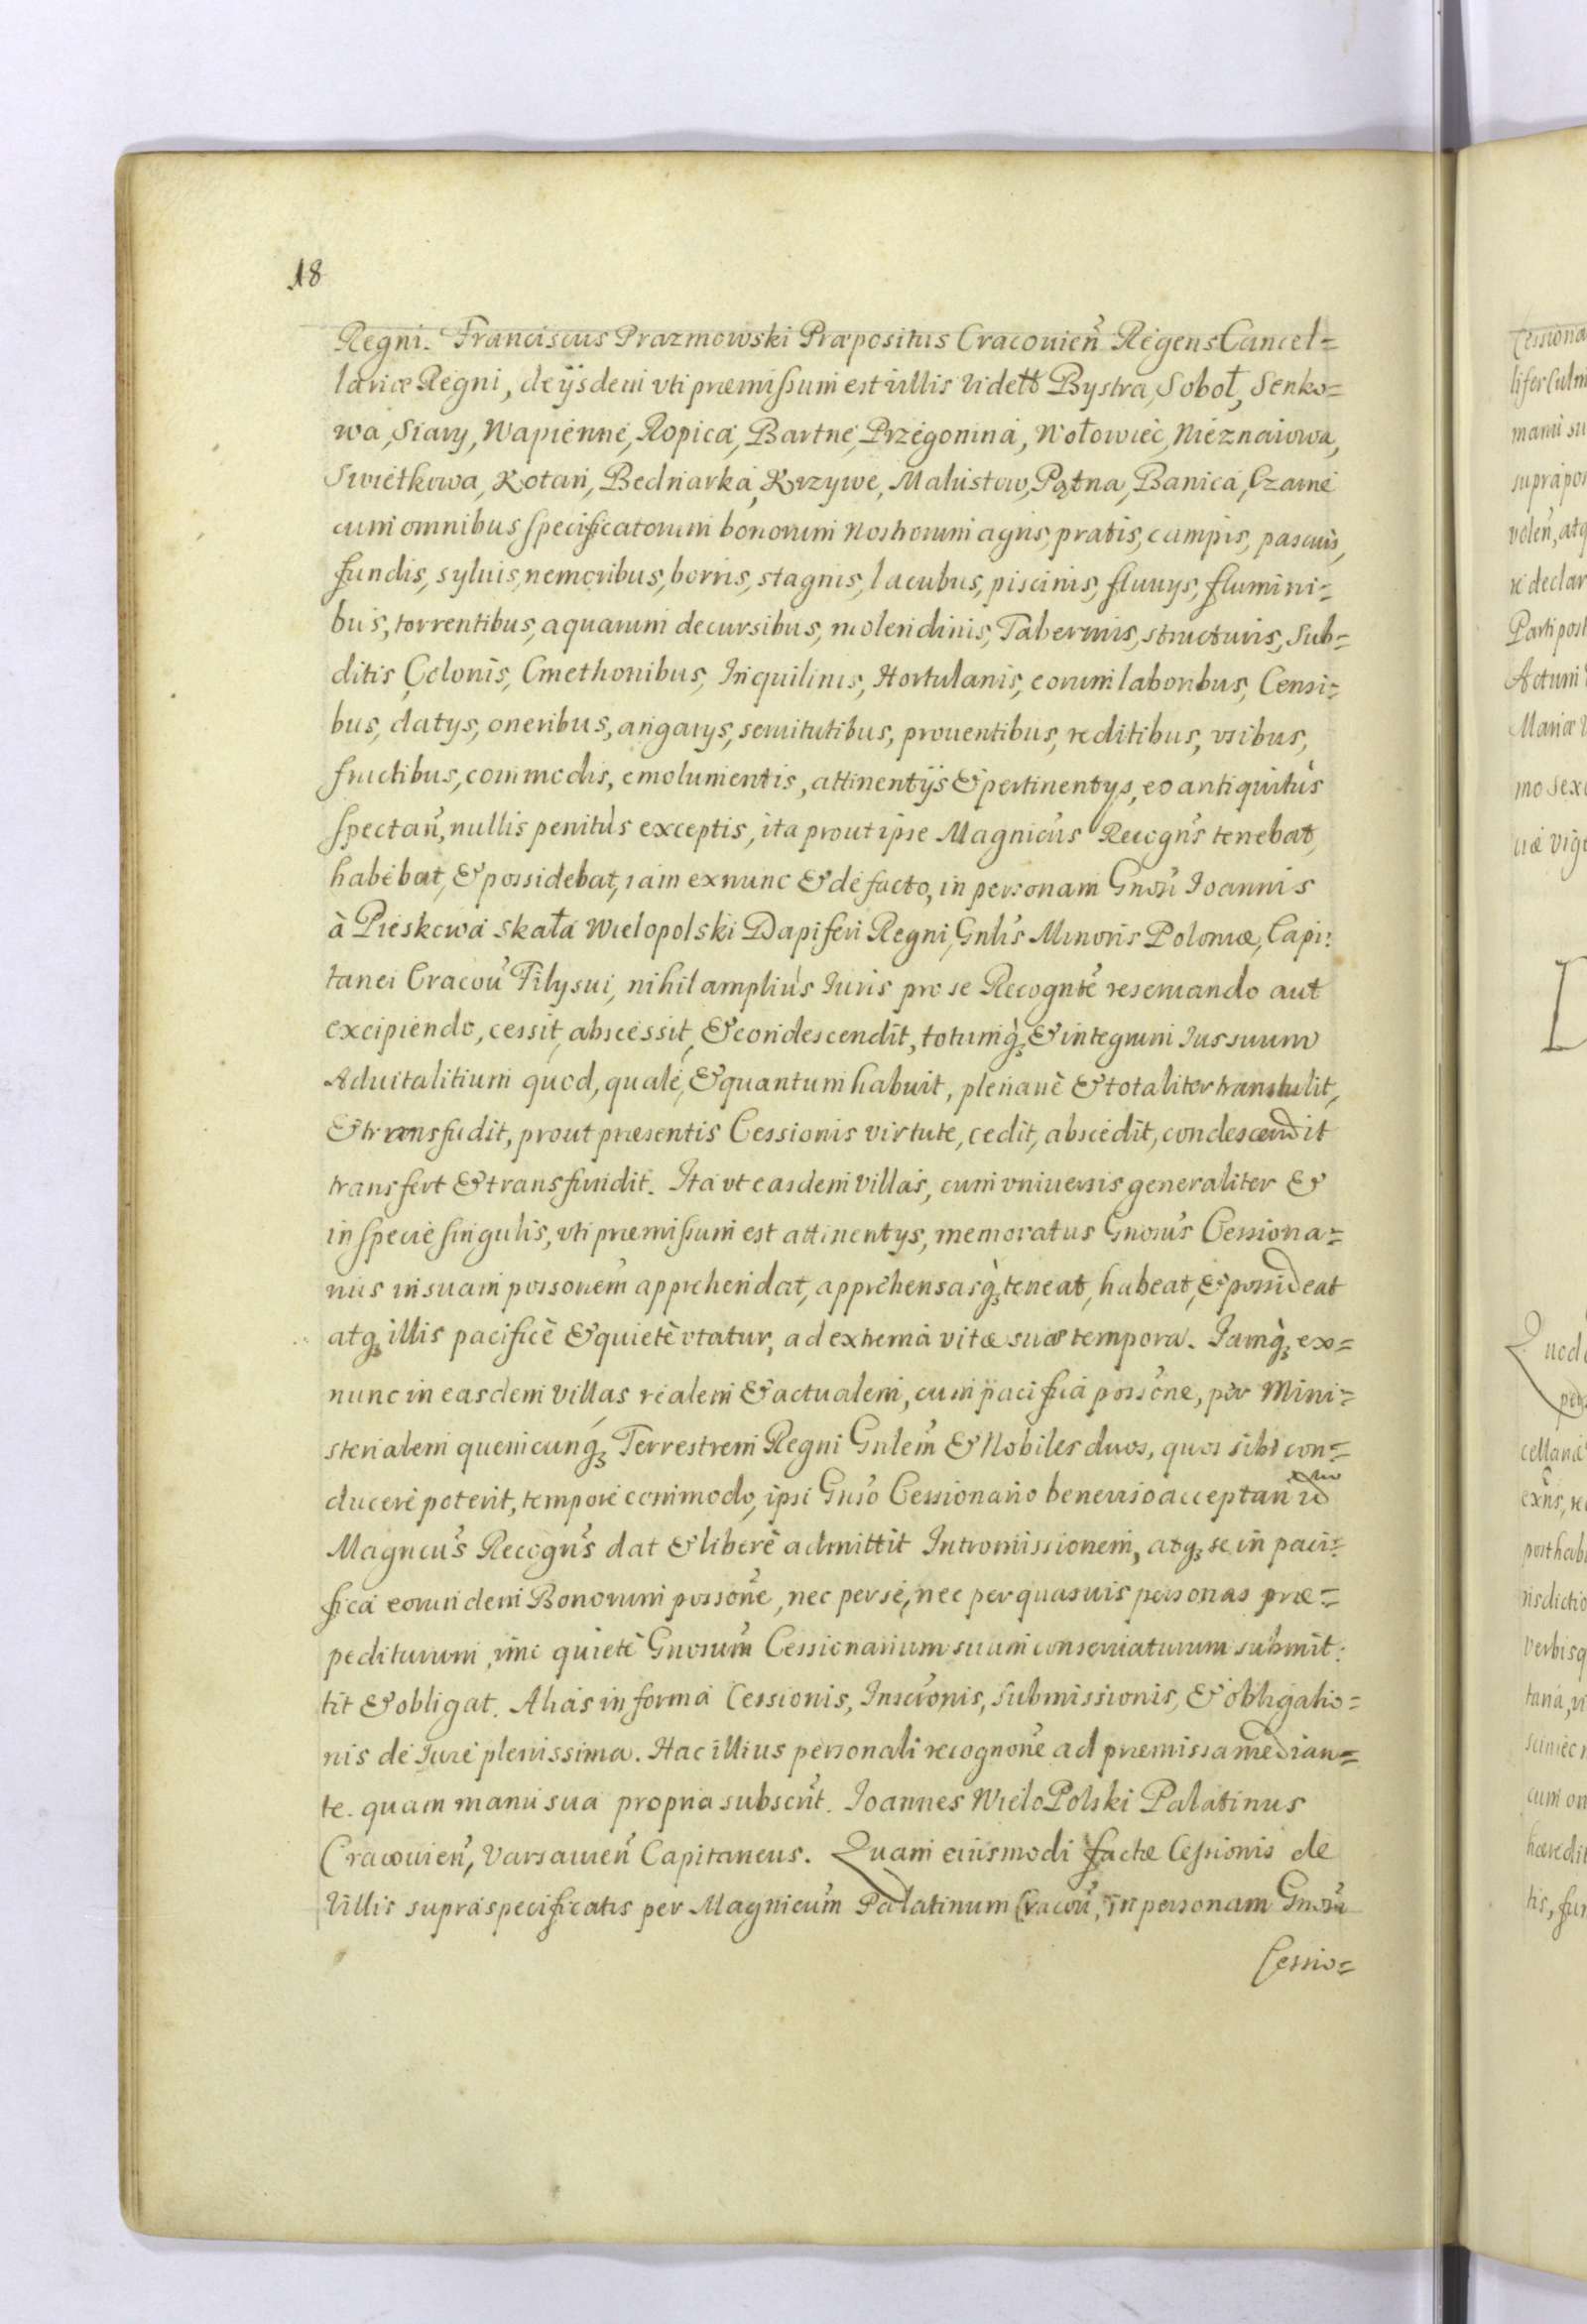 18
Regni. Franciscus Prazmowski Præpositus Cracouień Regens Cancel=
lariæ Regni, de ijsdem vti præmissum est villis videlt Bystra, Soboł, Senko=
wa, Siary, Wapienne, Ropica, Bartne, Przegonina, Wołowiec, Nieznaiowa,
Swietkowa, Kotan, Bednarka, Krzywe, Malustow, Pętna, Banica, Czarne
cum omnibus specificatorum bonorum nostrorum agris, pratis, campis, pascuis,
fundis, syluis, nemoribus, borris, stagnis, lacubus, piscinis, fluuys, flumini=
bus, torrentibus, aquarum decursibus, molendinis, Tabernis, structuris, Sub=
ditis Colonis, Cmethonibus, Inquilinis, Hortulanis, eorum laboribus, Censi=
bus, datys, oneribus, angarys, seruitutibus, prouentibus, reditibus, vsibus,
fructibus, commodis, emolumentis, attinentijs & pertinentys, eo antiquitùs
spectań, nullis penitùs exceptis, ita prout ipse Magnicus Recogns tenebat,
habebat, & possidebat, iam exnunc & de facto, in personam Gnosi Ioannis
à Pieskowa Skała Wielopolski Dapiferi Regni, Gnlis Minoris Poloniæ, Capi=
tanei Cracou Filysui, nihil ampliùs Iuris pro se Recognte reseruando aut
excipiendo, cessit, abscessit, & condescendit, totumq, & integrum Ius suum
Aduitalitium quod, quale, & quantum habuit, plenariè & totaliter transtulit,
& transfudit, prout præsentis Cessionis virtute, cedit, abscedit, condescendit
transfert & transfundit. Ita vt easdem villas, cum vniuersis generaliter &
in specie singulis, vti præmissum est attinentys, memoratus Gnosus Cessiona=
rius in suam possonem apprehendat, apprehensasq, teneat, habeat, & possideat
atq, illis pacificè & quietè vtatur, ad extrema vitæ suæ tempora. Iamq, ex=
nunc in easdem villas realem & actualem, cum pacifica possone, per Mini=
sterialem quemcunq, Terrestrem Regni Gnlem & Nobiles duos, quos sibi con=
ducere poterit, tempore commodo, ipsi Gnso Cessionario beneuiso acceptan
Magnicus Recogns dat & liberè admittit Intromissionem, atq, se in paci=
fica eorundem Bonorum possone, nec per se, nec per quasuis personas præ=
pediturum, imo quietè Gnosum Cessionarium suum conseruaturum submit=
tit & obligat. Alias in forma Cessionis, Inscronis, Submissionis, & obligatio=
nis de Iure plenissima. Hac illius personali recognone ad præmissa median=
te. quam manu sua propria subscrit. Ioannes WieloPolski Palatinus
Cracouień, Varsauień Capitaneus. Quam eiusmodi factæ Cessionis de
Villis supraspecificatis per Magnicum Palatinum Cracou, in personam Gnosi
Cessio=